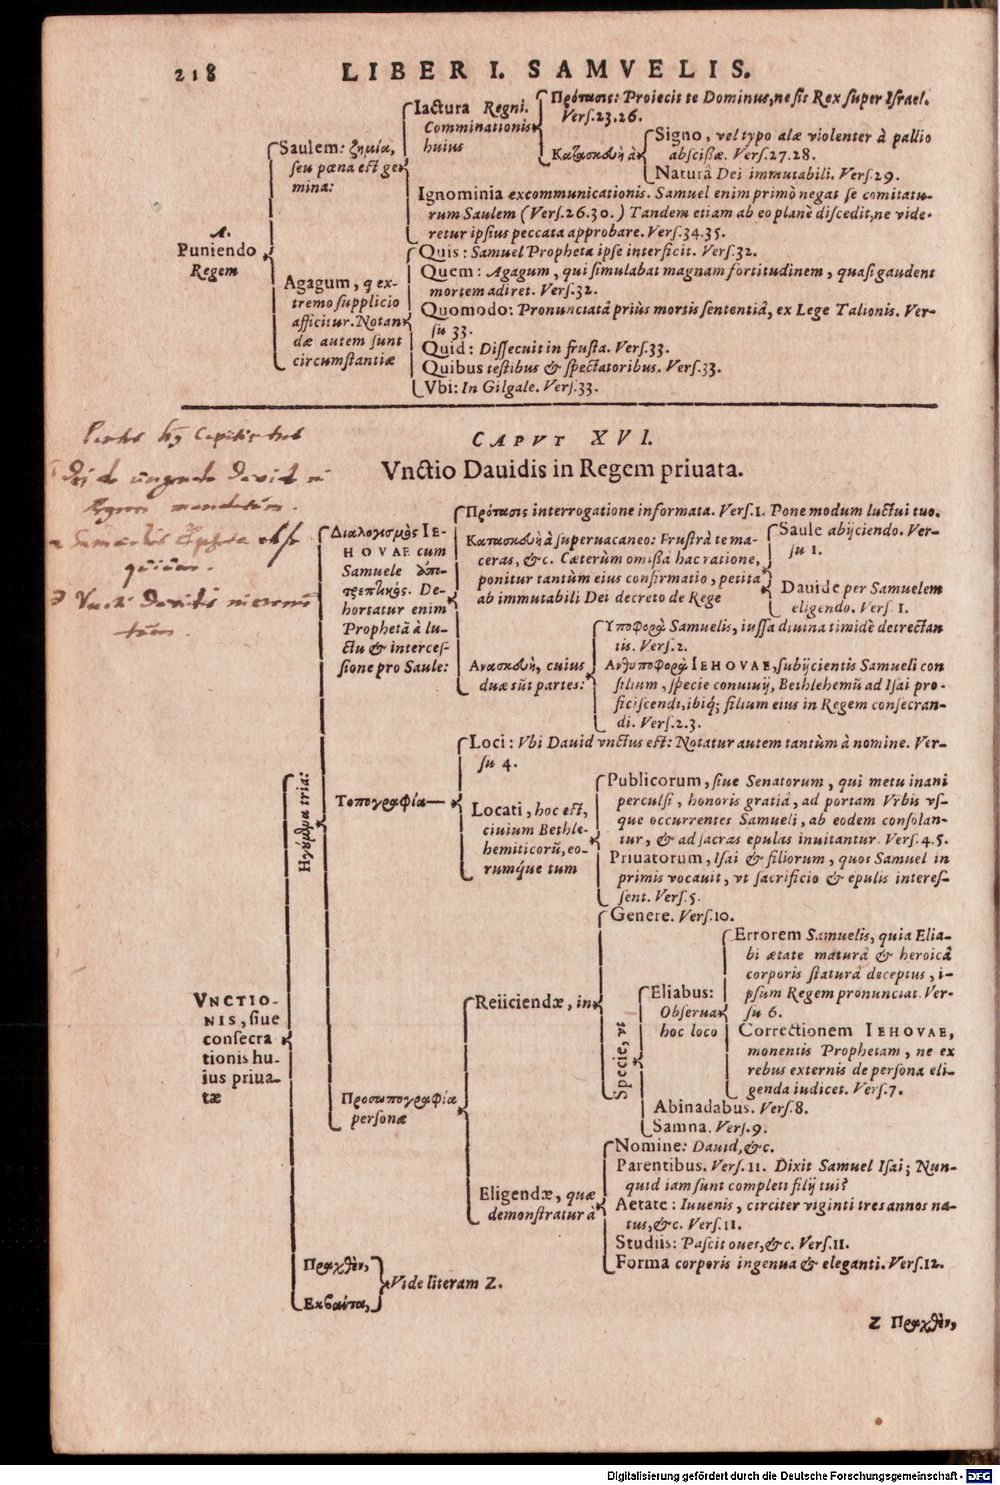 218
LIBER I. SAMVELIS.
A.
Puniendo
Regem
Saulem: ζημία,
ſeu pœna eſt ge-
mina:
Iactura Regni.
Comminationis
huius
Πρότασις: Proiecit te Dominus, ne ſis Rex ſuper Iſrael.
Verſ.23.26.
Κατασκευὴ à
Signo, vel typo alæ violenter à pallio
abſciſſæ. Verſ.27.28.
Naturâ Dei immutabili. Verſ.29.
Ignominia excommunicationis. Samuel enim primò negat ſe comitatu-
rum Saulem (Verſ.26.30.) Tandem etiam ab eo planè diſcedit, ne vide-
retur ipſius peccata approbare. Verſ.34.35.
Agagum, q ex-
tremo ſupplicio
afficitur. Notan
dæ autem ſunt
circumſtantiæ
Quis: Samuel Propheta ipſe interficit. Verſ.32.
Quem: Agagum, qui ſimulabat magnam fortitudinem, quaſi gaudens
mortem adiret. Verſ.32.
Quomodo: Pronunciatâ priùs mortis ſententiâ, ex Lege Talionis. Ver-
ſu 33.
Quid: Diſſecuit in fruſta. Verſ.33.
Quibus teſtibus & ſpectatoribus. Verſ.33.
Vbi: In Gilgale. Verſ.33.
CAPVT XVI.
Vnctio Dauidis in Regem priuata.
VNCTIO-
NIS, ſiue
conſecra
tionis hu-
ius priua-
tæ
tria:
Διαλογισμὸς IE-
HOVAE cum
Samuele ἀπο-
τρεπτικός. De-
hortatur enim
Prophetā à lu-
ctu & interceſ-
ſione pro Saule:
Πρότασις interrogatione informata. Verſ.1. Pone modum luctui tuo.
Κατασκευὴ à ſuperuacaneo: Fruſtrà te ma-
ceras, &c. Cæterùm omiſſâ hac ratione,
ponitur tantùm eius confirmatio, petita
ab immutabili Dei decreto de Rege
Saule abijciendo. Ver-
ſu 1.
Dauide per Samuelem
eligendo. Verſ. 1.
Ανασκευὴ, cuius
duæ sūt partes:
Υποφορὰ Samuelis, iuſſa diuina timidè detrectan
tis. Verſ.2.
Ανθυποφορὰ IEHOVAE, ſubijcientis Samueli con
ſilium, ſpecie conuiuij, Bethlehemū ad Iſai pro-
ficiſcendi, ibiq; filium eius in Regem conſecran-
di. Verſ.2.3.
Τοπογραφία
Loci: Vbi Dauid vnctus eſt: Notatur autem tantùm à nomine. Ver-
ſu 4.
Locati, hoc eſt,
ciuium Bethle-
hemiticorū, eo-
rumq́ue tum
Publicorum, ſiue Senatorum, qui metu inani
perculſi, honoris gratiâ, ad portam Vrbis vſ-
que occurrentes Samueli, ab eodem conſolan-
tur, & ad ſacras epulas inuitantur. Verſ.4.5.
Priuatorum, Iſai & filiorum, quos Samuel in
primis vocauit, vt ſacrificio & epulis intereſ-
ſent. Verſ.5.
Προσωπογραφία
perſonæ
Reiiciendæ, in
Genere. Verſ.10.
Specie, vt
Eliabus:
Obſerua
hoc loco
Errorem Samuelis, quia Elia-
bi ætate maturâ & heroicâ
corporis ſtaturâ deceptus, i-
pſum Regem pronunciat. Ver-
ſu 6.
Correctionem IEHOVAE,
monentis Prophetam, ne ex
rebus externis de perſona eli-
genda iudicet. Verſ.7.
Abinadabus. Verſ.8.
Samna. Verſ.9.
Eligendæ, quæ
demonſtratur à
Nomine: Dauid, &c.
Parentibus. Verſ.11. Dixit Samuel Iſai; Nun-
quid iam ſunt completi filij tui?
Aetate: Iuuenis, circiter viginti tres annos na-
tus, &c. Verſ.11.
Studiis: Paſcit oues, &c. Verſ.11.
Forma corporis ingenua & eleganti. Verſ.12.
Πραχθὲν,
Εκβαντα,
Vide literam Z.
Z Πραχθὲν,
Digitalisierung gefördert durch die Deutsche Forschungsgemeinschaft - DFG